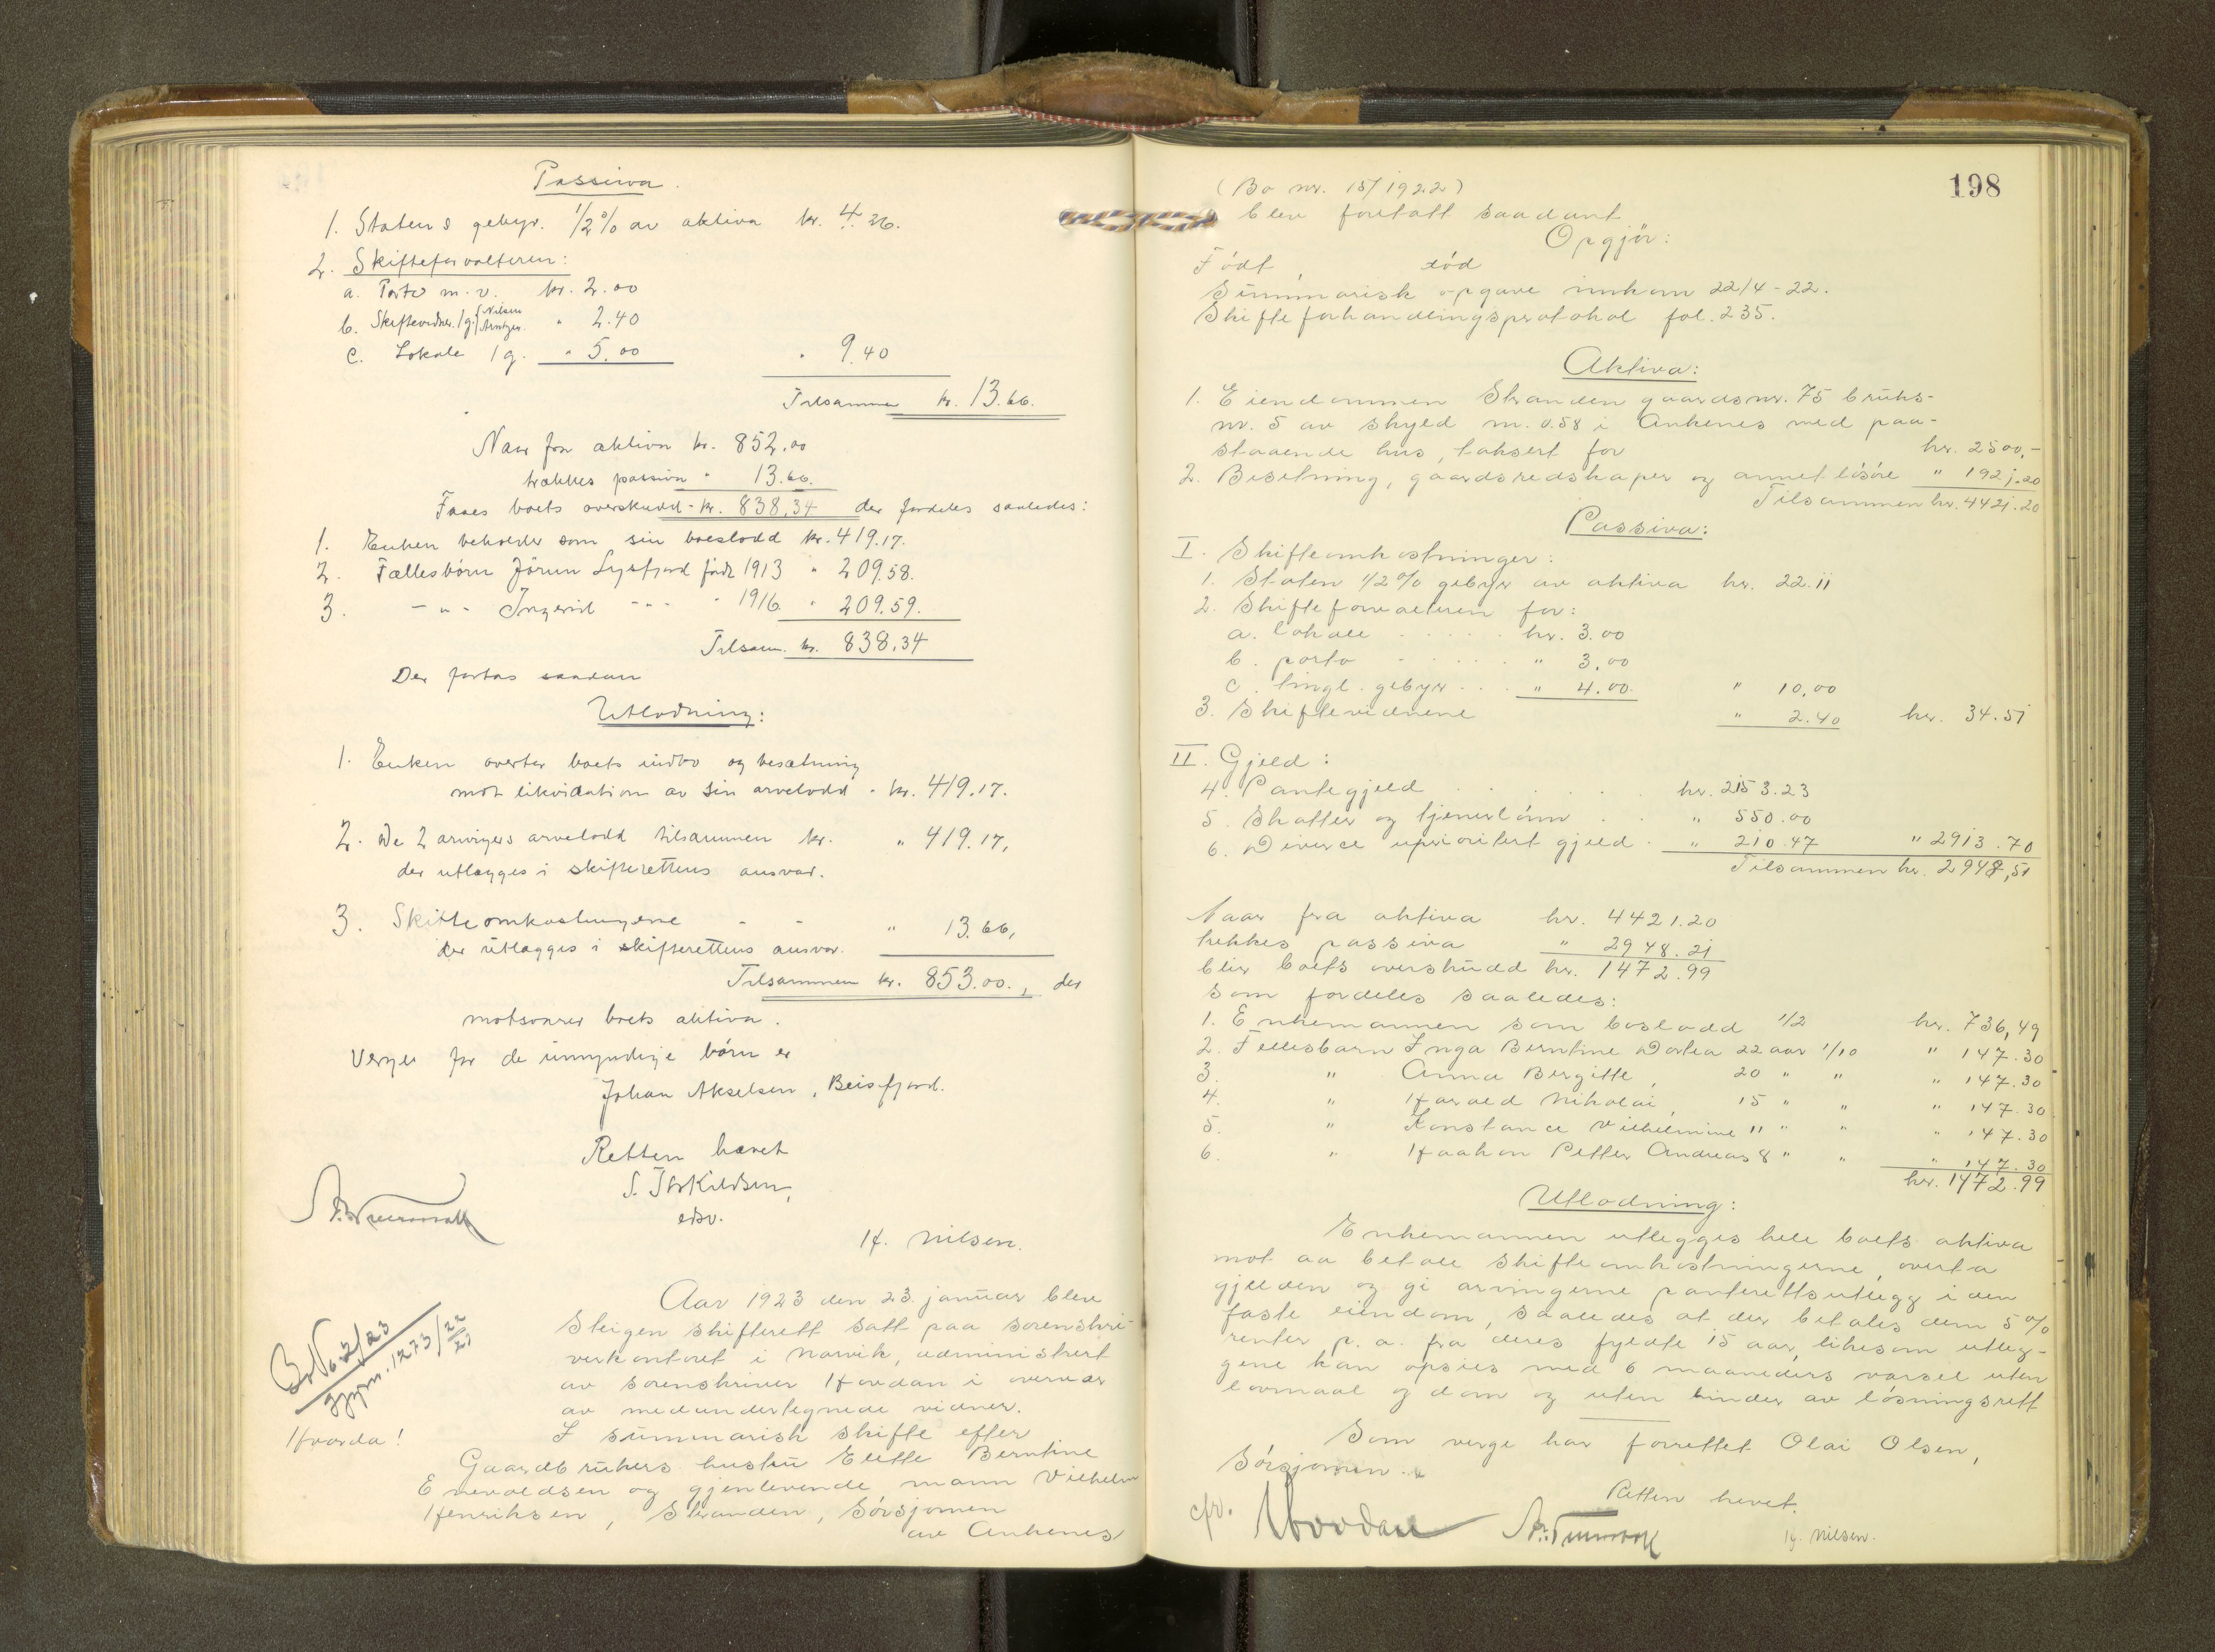 Passiva.
1. Statens gebyr. 1/2 % av aktiva kr. 4.26.
2. Skifteforvalteren:
a. Porto m. v. kr. 2.00
b. Skiftevidner 1 g. Nilsen Arntzen " 2.40
c. Lokale 1 g. " 5.00 " 9.40
Tilsammen kr. 13.66.
Naar fra aktiva kr. 852.00
trækkes passiva " 13.66.
Faaes boets overskudd - kr. 838,34 der fordeles saaledes:
1. Enken beholder som sin boeslodd kr. 419.17.
2. Fællesbörn Jörun Lysfjord födt 1913 " 209.58.
3. - " - Ingerid - " - " 1916 " 209.59.
Tilsam. kr. 838.34
Der fortas saadan
Utlodning:
1. Enken overtar boets indbo og besætning
mot likvidation av sin arvelodd - kr. 419.17.
2. De 2 arvingers arvelodd tilsammen kr. " 419.17,
der utlægges i skifterettens ansvar.
3. Skifteomkostningerne - - " 13.66,
der utlægges i skifterettens ansvar.
Tilsammen kr. 853.00., der
motsvarer boets aktiva.
Verge for de umyndige börn er
Johan Akselsen, Beisfjord.
Retten hævet
S. Torkildsen,
edsv.
H. Nilsen.
Aar 1923 den 23. januar blev
Steigen skifterett satt paa sorenskri-
verkontoret i Narvik, administrert
av sorenskriver Hovdan i overvær
av medundertegnede vidner.
Bo No. 2/23
1273/22
Hvorda!
I summarisk skifte efter
Gaardbrukers hustru Elette Berntine
Enevoldsen og gjenlevende mann Vilhelm
Henriksen, Stranden, Sörsjomen
av Ankenes
198
(Bo nr. 15/1922)
blev foretatt saadant
Opgjör:
Födt död
Summarisk opgave innkom 22/4-22.
Skifteforhandlingsprotokol fol. 235.
Aktiva:
1. Eiendommen Stranden gaardsnr. 75 bruks-
nr. 5 av skyld m. 0.58 i Ankenes med paa-
staaende hus, taksert for kr. 2500,-
2. Besetning, gaardsredskaper og annet lösöre " 1921.20
Tilsammen kr. 4421.20
Passiva:
I. Skifteomkostninger:
1. Staten 1/2 % gebyr av aktiva kr. 22.11
2. Skifteforvalteren for:
a. lokale . . . . . kr. 3.00
b. porto - . . . . " 3.00
c. tingl. gebyr . . . " 4.00. " 10,00
3. Skiftevidnene " 2.40 kr. 34.51
II. Gjeld:
4. Pantegjeld . . . . . kr. 2153.23
5. Skatter og tjenerlönn . . " 550.00
6. Diverse uprioritert gjeld . " 210.47 " 2913.70
Tilsammen kr. 2948,51
Naar fra aktiva kr. 4421.20
trekkes passiva " 2948.21
blir boets overskudd kr. 1472.99
som fordeles saaledes:
1. Enkemannen som boslodd 1/2 kr. 736,49
2. Fellesbarn Inga Berntine Dortea 22 aar 1/10 " 147.30
3. " Anna Birgitte, 20 " " " 147.30
4. " Harald Nikolai, 15 " " " 147.30
5. " Konstance Vilhelmine 11 " " " 147.30
6. " Haakon Petter Andreas 8 " " " 147.30
kr. 1472.99
Utlodning:
Enkemannen utlegges hele boets aktiva
mot aa betale skifteomkostningerne, overta
gjelden og gi arvingerne panterettsutlegg i den
faste eiendom, saaledes at der betales dem 5 %
renter p. a. fra deres fyldte 15 aar, likesom utleg-
gene kan opsies med 6 maaneders varsel uten
lovmaal og dom og uten hinder av lösningsrett
Som verge har forrettet Olai Olsen,
Sörsjomen.
Retten hevet.
cfr. Hovdan
H. Nilsen.